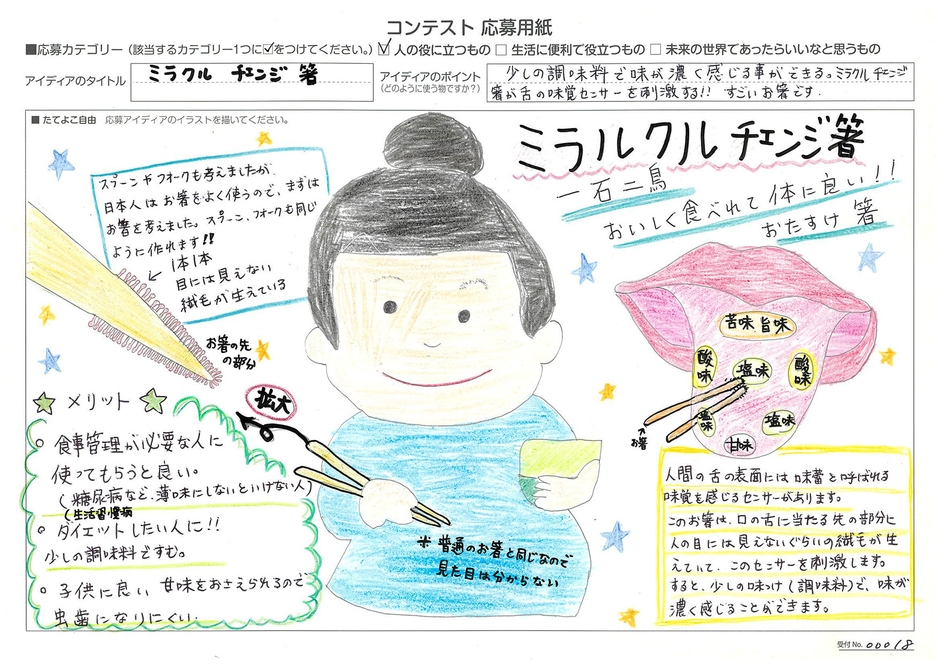 コンテスト 応募用紙
■応募カテゴリー（該当するカテゴリー1つに☑をつけてください。）☑ 人の役に立つもの □ 生活に便利で役立つもの □ 未来の世界であったらいいなと思うもの
アイディアのタイトル
ミラクル チェンジ 箸
アイディアのポイント
（どのように使う物ですか？）
少しの調味料で味が濃く感じる事ができる。ミラクルチェンジ
箸が舌の味覚センサーを刺激する!! すごいお箸です.
■ たてよこ自由　応募アイディアのイラストを描いてください。
ミラルクル チェンジ箸
一石二鳥
おいしく食べれて 体に良い!!
おたすけ 箸
スプーンやフォークも考えましたが
日本人はお箸をよく使うので、まずは
お箸を考えました。スプーン、フォークも同じ
ように作れます!!
1本1本
目には見えない
繊毛が生えている
お箸の先
の部分
拡大
☆ メリット ☆
○ 食事管理が必要な人に
使ってもらうと良い。
(糖尿病など、薄味にしないといけない人)
(生活習慣病
○ ダイエットしたい人に!!
少しの調味料ですむ。
○ 子供に良い 甘味をおさえられるので
虫歯になりにくい.
※ 普通のお箸と同じなので
見た目は分からない
苦味 旨味
酸味
塩味
酸味
塩味
塩味
甘味
お箸
人間の舌の表面には 味蕾と呼ばれる
味覚を感じるセンサーがあります。
このお箸は、口の舌に当たる先の部分に
人の目には見えないぐらいの繊毛が生
えていて、このセンサーを刺激します。
すると、少しの味つけ(調味料)で、味が
濃く感じることができます。
受付 No. 00018